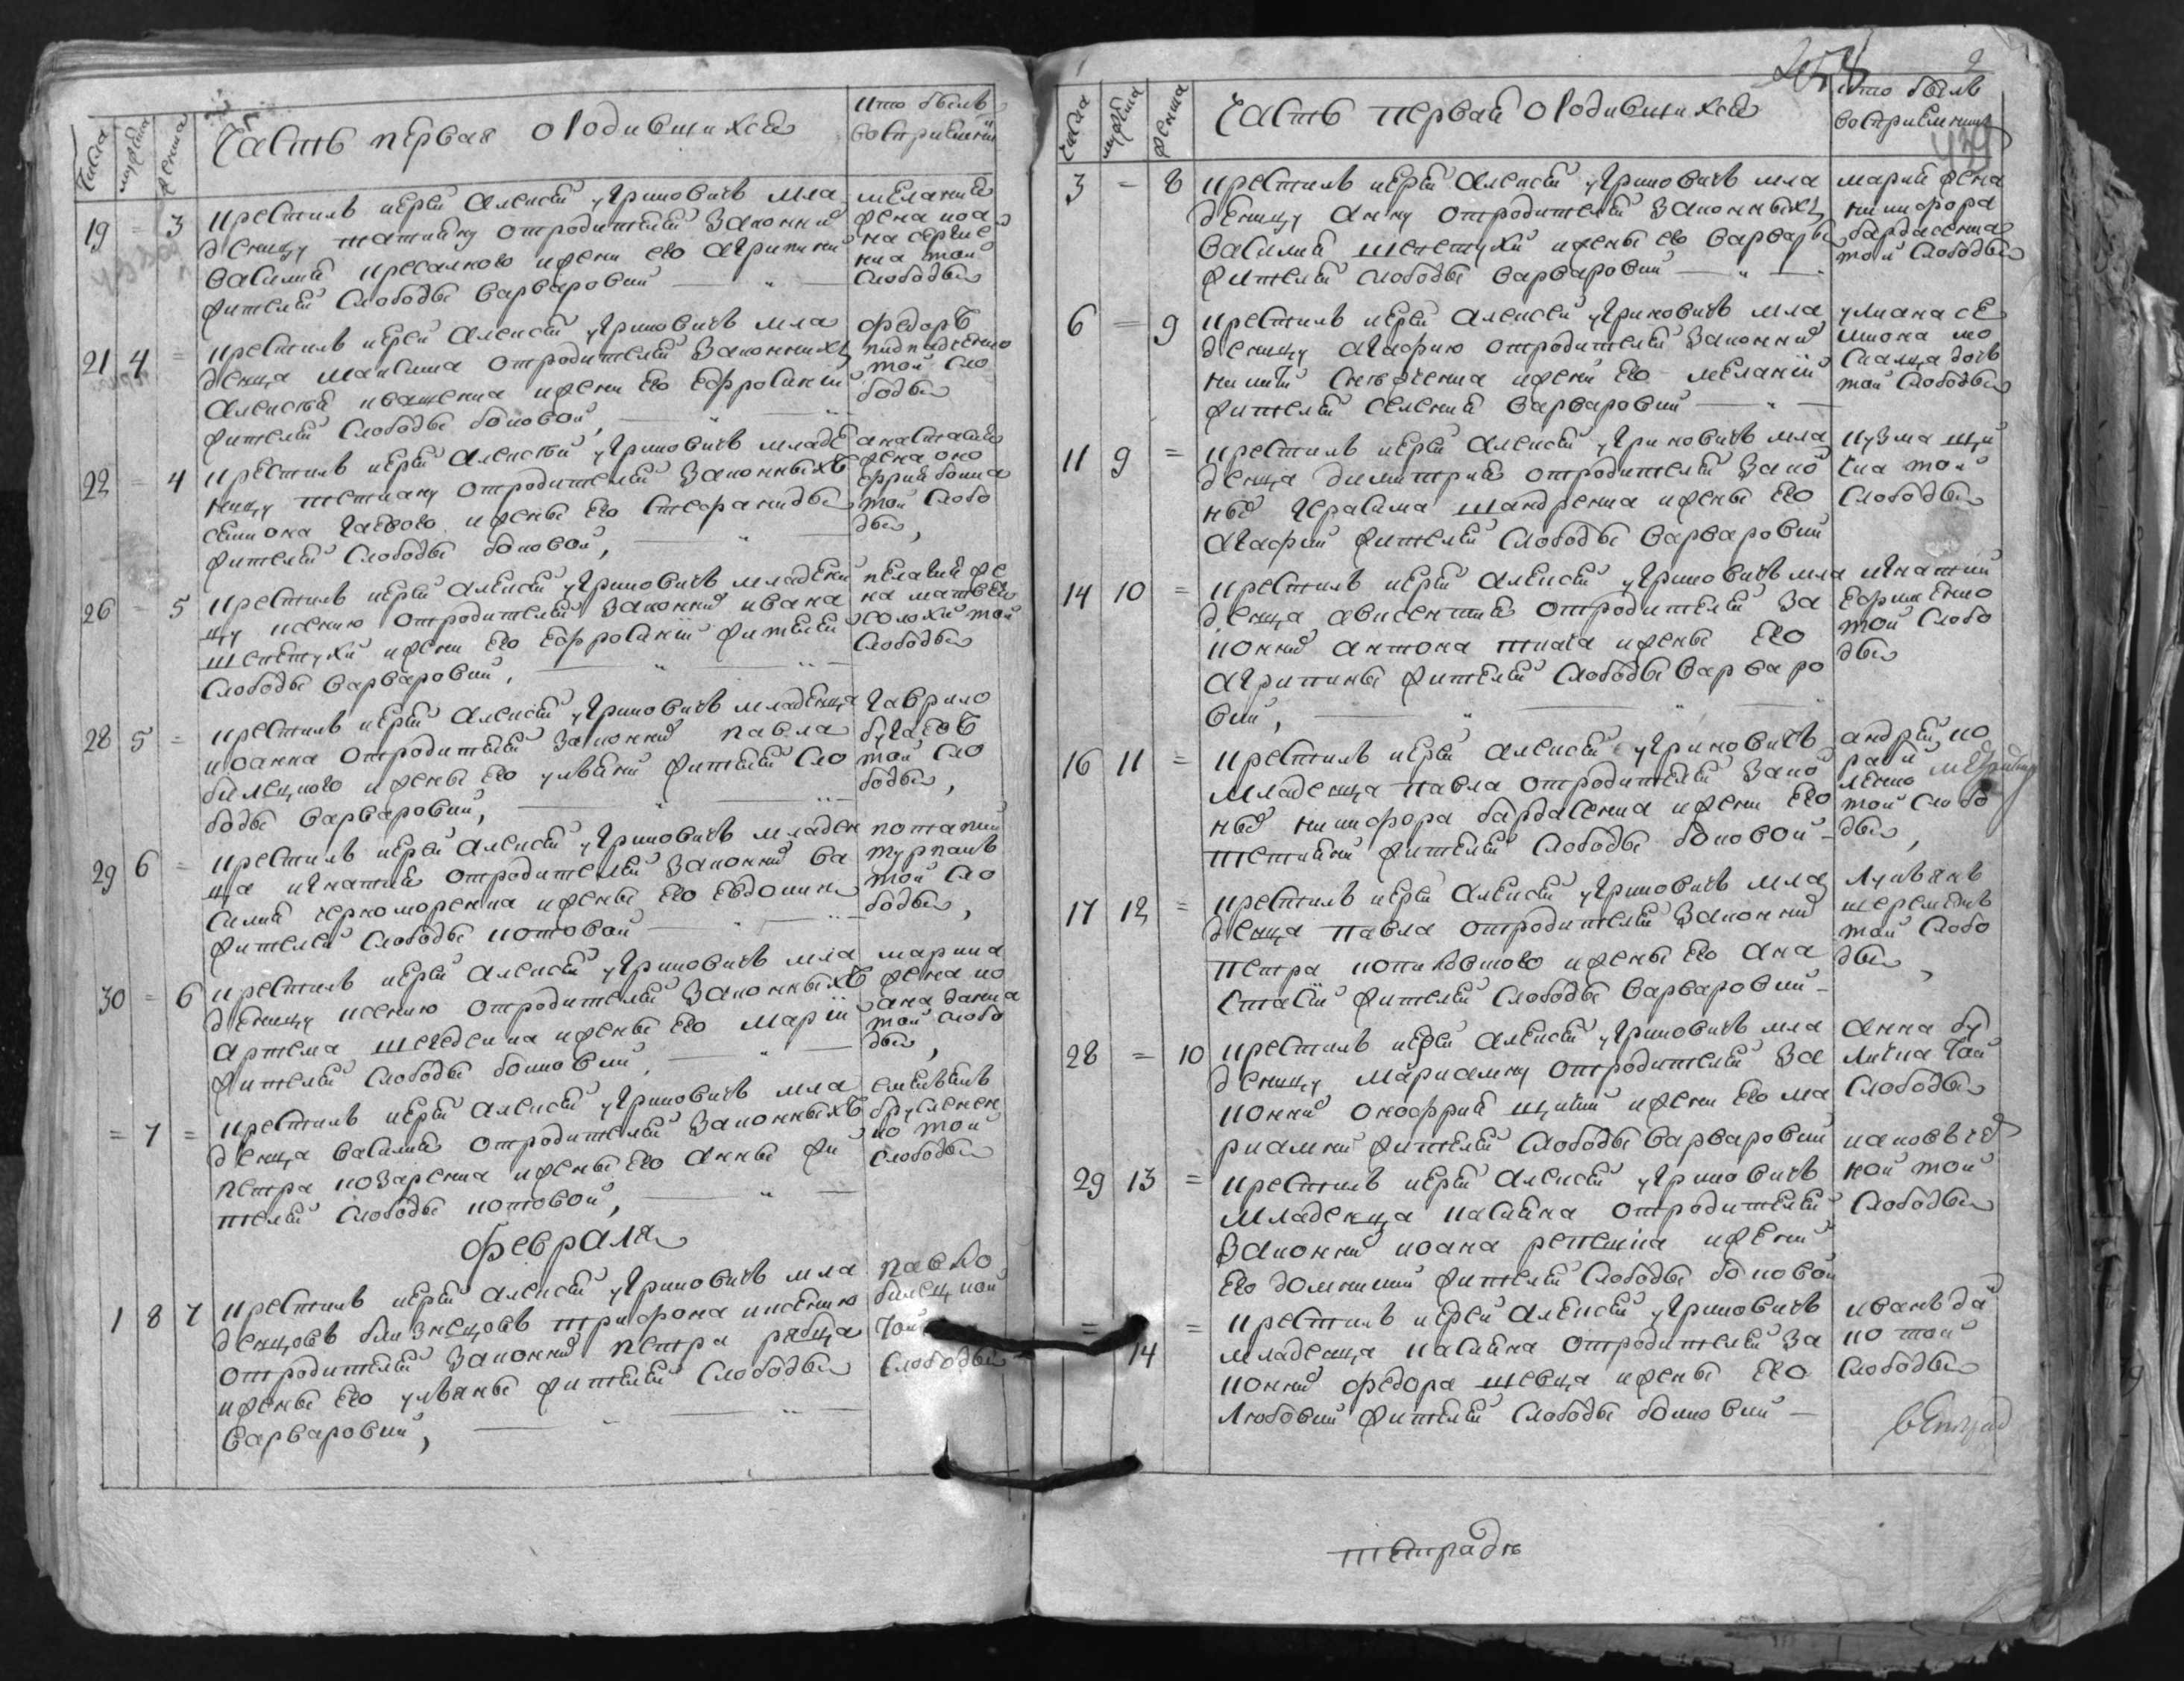 Часть первая о Родившихся
Числа
мужеска
женска
кто былъ
восприемни
19 = 3 крестилъ иерей Алексей Гриновичъ мла
деницу татияну от родителей законни
василия кресалного и жени его агрипини
жителей слободы варваровки
мелания
жена ива
на сергие
нка той
слободы
21 4 = крестилъ иерей Алексей Гриновичъ мла
денца максима от родителей законнихъ
алексея ивашенка и жени его ефросинии
жителей слободы боковой,
федоръ
той сло
боды
22 = 4 крестилъ иерей Алексей Гриновичъ младе
ницу тетиану от родителей законныхъ
семиона гаевого и жены его стефаниды
жителей слободы боковой,
анастасия
жена оно
фрия
той слобо
ды,
26 = 5 крестилъ иерей Алексей Гриновичъ младени
цу ксению от родителей законнй ивана
шепетухи и жени его ефросинии жителей
слободы варваровки,
пелагия же
на матвея
солохи той
слободы
28 5 = крестилъ иерей Алексей Гриновичъ младенца
иоанна от родителей законнй павла
билецкого и жены его улияни жителей сло
боды варваровки,
гаврило
бугаевъ
той сло
боды,
29 6 = крестилъ иерей Алексей Гриновичъ младен
ца игнатия от родителей законнй ва
силия черноморенка и жены его евдокии
жителей слободы котовой
потапий
турпакъ
той сло
боды,
30 = 6 крестилъ иерей Алексей Гриновичъ мла
деницу ксению от родителей законныхъ
артема шегеденка и жены его марии
жителей слободы боковки,
марина
жена ко
той слобо
ды,
= 7 = крестилъ иерей Алексей Гриновичъ мла
денца василия от родителей законныхъ
петра козаренка и жены его анны жи
телей слободы котовой,
емилиянъ
брусленен
ко той
слободы
февраля
1 8 7 крестилъ иерей Алексей Гриновичъ мла
денцовъ близнецовъ трифона и ксению
от родителей законнй петра рябца
и жены его улияны жителей слободы
варваровки,
павло
билецкой
той
слободы
2
439
Часть первая о Родившихся
Числа
мужеска
женска
кто былъ
восприемники
3 = 8 крестилъ иерей Алексей Гриновичъ мла
деницу анну от родителей законныхъ
василия шепетухи и жены его варвары
жителей слободы варваровки
мария жена
никифора
бардасенка
той слободы
6 = 9 крестилъ иерей Алексей Гриновичъ мла
деницу агафию от родителей законнй
никити снежченка и жени его мелании
жителей селения варваровки
улиана се
миона мо
скалца дочь
той слободы
11 9 = крестилъ иерей Алексей Гриновичъ мла
денца димитрия от родителей зако
ныхъ герасима шандренка и жены его
агафии жителей слободы варваровки
кузма щу
ска той
слободы
14 10 = крестилъ иерей Алексей Гриновичъ мла
денца авксентия от родителей за
конний антона ткача и жены его
агрипины жителей слободы варваро
вки,
игнатий
ефименко
той слобо
ды
16 11 = крестилъ иерей Алексей Гриновичъ
младенца павла от родителей зако
ныхъ никифора бардасенка и жени его
тетияни жителей слободы боковой
андрей ко
рай
ленко
той слобо
ды,
17 12 = крестилъ иерей Алексей Гриновичъ мла
денца павла от родителей законнй
петра копиловского и жены его ана
стасии жителей слободы варваровки
лукиянъ
шереметъ
той слобо
ды,
28 = 10 крестилъ иерей Алексей Гриновичъ мла
деницу мариамну от родителей за
конний онофрия щucкий и жени его ма
риамни жителей слободы варваровки
анна бу
личка той
слободы
29 13 = крестилъ иерей Алексей Гриновичъ
младенца касияна от родителей
законний иоана репешка и жении
его домникии жителей слободы боковой
кой той
слободы
= 14 = крестилъ иерей Алексей Гриновичъ
младенца касияна от родителей за
конний федора шевца и жены его
любовии жителей слободы боковки
иванъ да
ко той
слободы
тетрадь